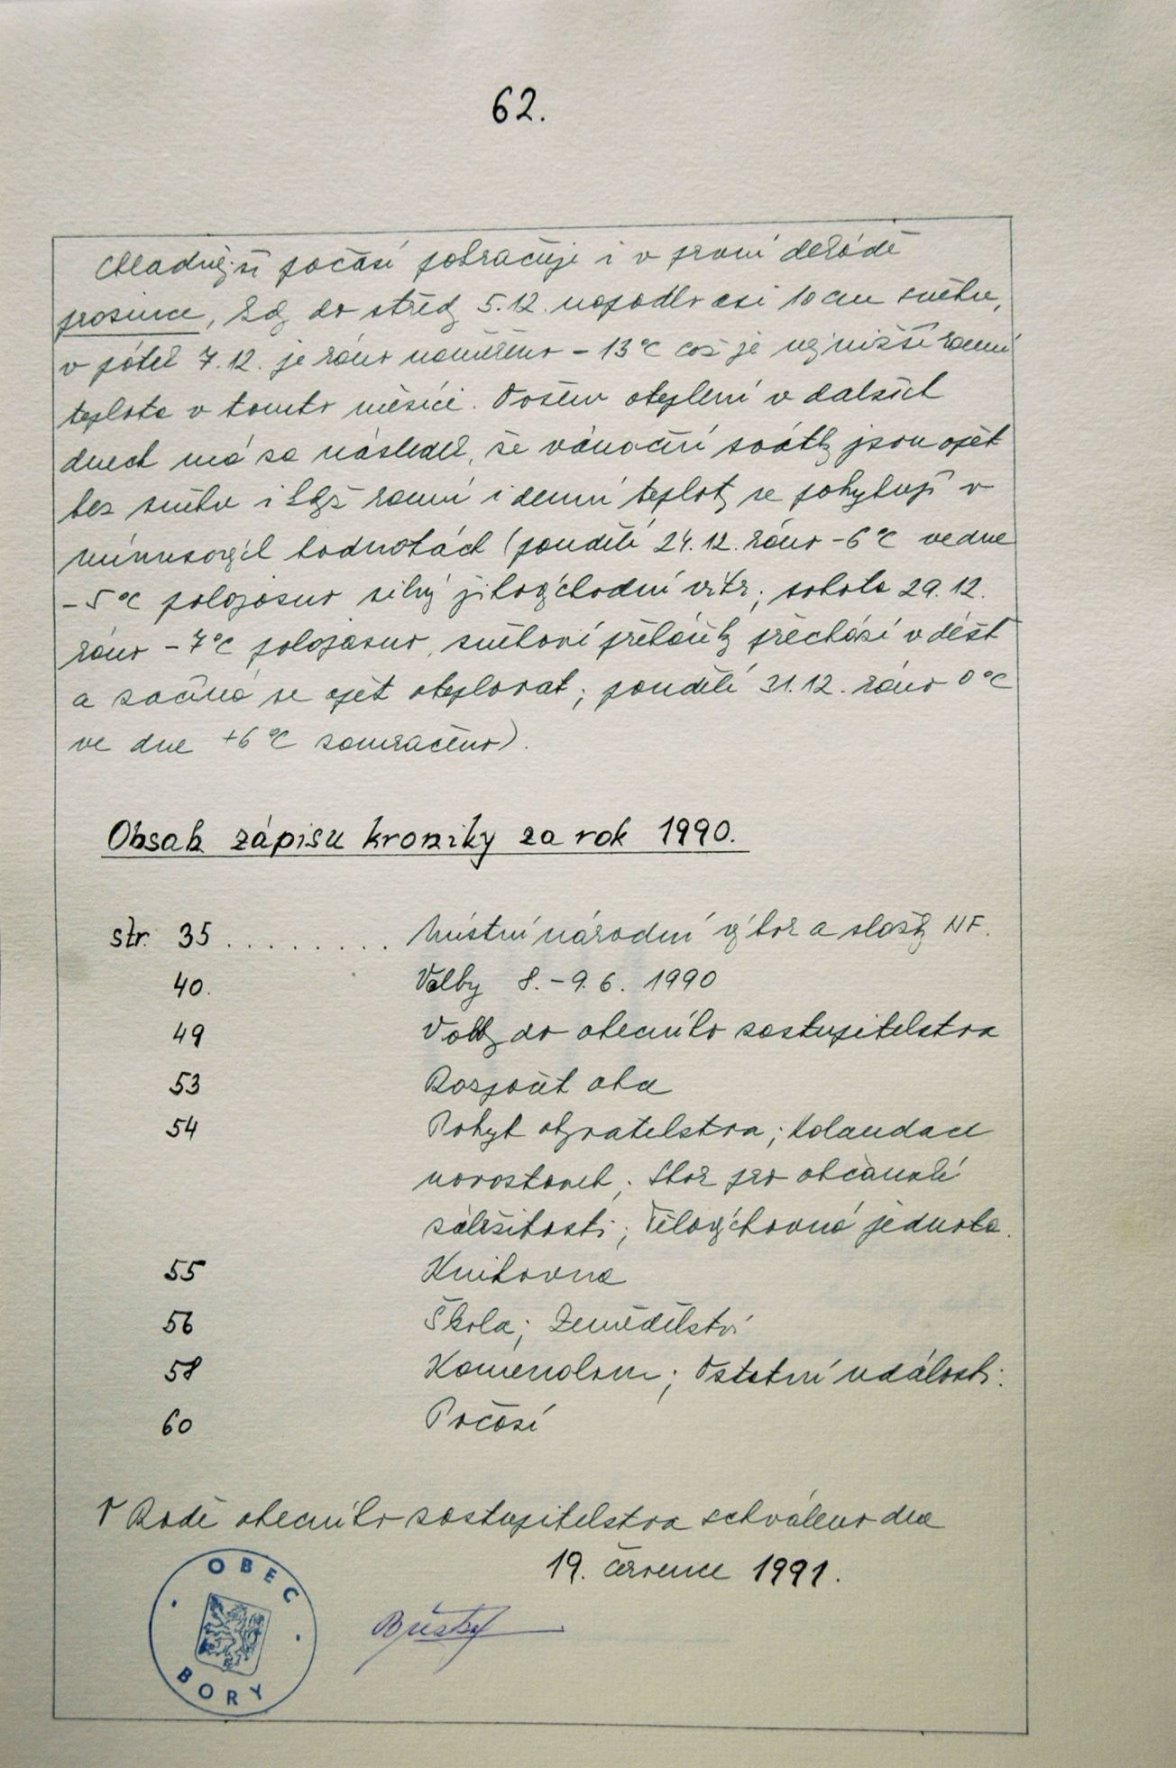 62.
Chladnější počasí pokračuje i v první dekádě
prosince, kdy do středy 5.12. napadlo asi 10 cm sněhu,
v pátek 7.12. je ráno naměřeno -13°C což je nejnižší ranní
teplota v tomto měsíci. Ovšem oteplení v dalších
dnech má za následek, že vánoční svátky jsou opět
bez sněhu i když ranní i denní teploty se pohybují v
mínusových hodnotách (pondělí 24.12. ráno -6°C ve dne
-5°C polojasno silný jihovýchodní vítr; sobota 29.12.
ráno -7°C polojasno, sněhové přeháňky přechází v déšť
a začíná se opět oteplovat; pondělí 31.12. ráno 0°C
ve dne +6°C zamračeno).
Obsah zápisu kroniky za rok 1990.
str. 35 ........ Místní národní výbor a složky NF.
40. Volby 8.-9.6. 1990
49 Volby do obecního zastupitelstva
53 Rozpočet obce
54 Pohyb obyvatelstva; Kolaudace
novostaveb; Sbor pro občanské
záležitosti; Tělovýchovná jednota.
55 Knihovna
56 Škola; Zemědělství
58 Kamenolom; Ostatní události.
60 Počasí
V Radě obecního zastupitelstva schváleno dne
19. července 1991.
OBEC
BORY